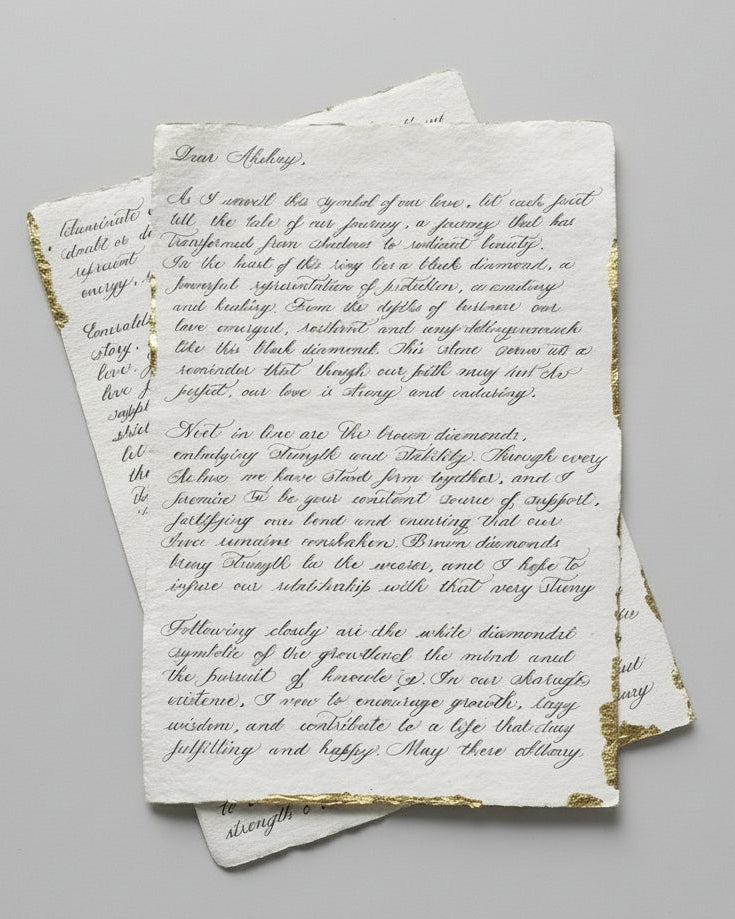 Dear
As I unveil this symbol of our love, let each facet
tell the tale of our journey, a journey that has
transformed from shadows to radiant beauty.
In the heart of this ring lies a black diamond, a
powerful representation of protection,
and healing. From the depths of our
love emerged, resilient and
like this black diamond. This stone serves as a
reminder that though our path may not be
perfect, our love is strong and enduring.
Next in line are the brown diamonds,
embodying strength and stability. Through every
we have stood firm together, and I
promise to be your constant source of support,
fortifying our bond and ensuring that our
remains unshaken. Brown diamonds
bring strength to the wearer, and I hope to
infuse our relationship with that very strong
Following closely are the white diamonds
symbolic of the growth of the mind and
the pursuit of In our
existence, I vow to encourage growth,
wisdom, and contribute to a life that
fulfilling and happy. May these
illuminate
doubt or
represent
energy,
Emeralds
story.
love.
love
let
the
to
strength